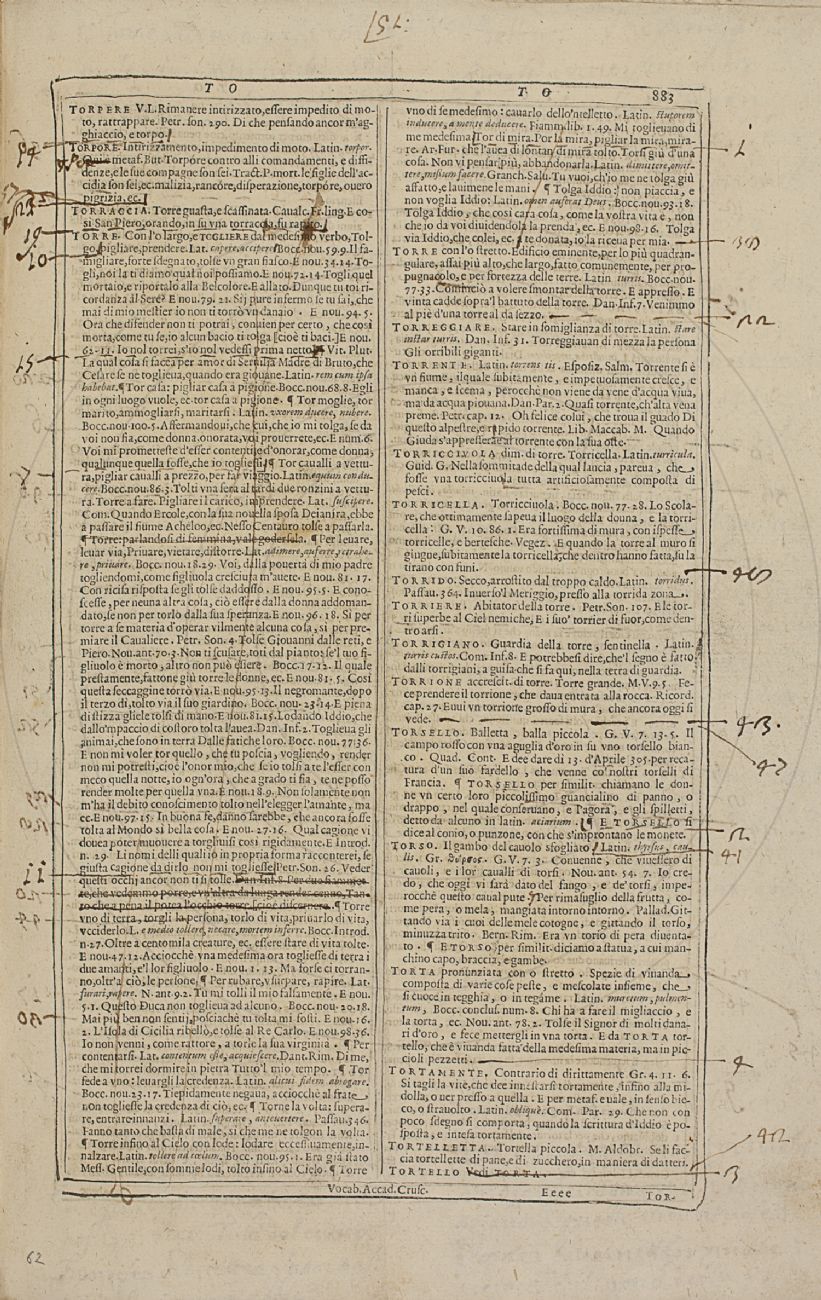 T O
T O
883
TORPERE V.L. Rimanere intirizzato, essere impedito di mo-
to, rattrappare. Petr. son. 290. Di che pensando ancor m'ag-
ghiaccio, e torpo.
TORPORE. Intirizzamento, impedimento di moto. Latin. torpor.
metaf. But. Torpóre contro alli comandamenti, e diffi-
denze, e le sue compagne son sei. Tract. P. mort. le figlie dell'ac-
cidia son sei, ec. malizia, rancóre, disperazione, torpóre, ouero
pigrizia, ec.
TORRACCIA. Torre guasta, e scassinata. Caualc. Fr. ling. E co-
sì San Piero, orando, in su vna torraccia, fu rapito.
TORRE. Con l'o largo, e TOGLIERE dal medesimo verbo, Tol-
go, pigliare, prendere. Lat. capere, accipere. Bocc. nou. 59. 9. Il fa-
migliare, forte sdegnato, tolse vn gran fiasco. E nou. 34. 14. To-
gli, noi la ti diamo qual noi possiamo. E nou. 72. 14. Togli quel
mortaio, e riportalo alla Belcolore. E allato. Dunque tu toi ri-
cordanza al Sere? E nou. 79. 21. Si pure infermo se tu sai, che
mai di mio mestier io non ti torrò vn danaio. E nou. 94. 5.
Ora che difender non ti potrai, conuien per certo, che così
morta, come tu se, io alcun bacio ti tolga [cioè ti baci.] E nou.
62. 11. Io nol torrei, s'io nol vedessi prima netto. Vit. Plut.
La qual cosa si facea per amor di Seruilia Madre di Bruto, che
Cesare se ne toglieua, quando era giouane. Latin. rem cum ipsa
habebat. ¶ Tor casa: pigliar casa a pigione. Bocc. nou. 68. 8. Egli
in ogni luogo vuole, ec. tor casa a pigione. ¶ Tor moglie, tor
marito, ammogliarsi, maritarsi. Latin. vxorem ducere, nubere.
Bocc. nou. 100. 5. Affermandoui, che cui, che io mi tolga, se da
voi non fia, come donna, onorata, voi prouerrete, ec. E num. 6.
Voi mi promettete d'esser contenti, e d'onorar, come donna,
qualunque quella fosse, che io togliessi. ¶ Tor caualli a vettu-
ra, pigliar caualli a prezzo, per far viaggio. Latin. equum condu-
cere. Bocc. nou. 86. 3. Tolti vna sera al tardi due ronzini a vettu-
ra. Torre a fare. Pigliare il carico, imprendere. Lat. suscipere.
Com. Quando Ercole, con la sua nouella sposa Deianira, ebbe
a passare il fiume Acheloo, ec. Nesso Centauro tolse a passarla.
¶ Torre: parlandosi di femmina, vale godersela. ¶ Per leuare,
leuar via, Priuare, vietare, distorre. Lat. adimere, auferre, retrahe-
re, priuare. Bocc. nou. 18. 29. Voi, dalla pouertà di mio padre
togliendomi, come figliuola cresciuta m'auete. E nou. 81. 17.
Con ricisa risposta se gli tolse daddosso. E nou. 95. 5. E cono-
scesse, per neuna altra cosa, ciò essere dalla donna addoman-
dato, se non per torlo dalla sua speranza. E nou. 96. 18. Si per
torre a se materia d'operar vilmente alcuna cosa, sì per pre-
miare il Caualiere. Petr. Son. 4. Tolse Giouanni dalle reti, e
Piero. Nou. ant. 70. 3. Non ti scusare, toti dal pianto: se'l tuo fi-
gliuolo è morto, altro non può essere. Bocc. 17. 12. Il quale
prestamente, fattone giù torre le donne, ec. E nou. 81. 5. Così
questa seccaggine torrò via. E nou. 95. 13. Il negromante, dopo
il terzo dì, tolto via il suo giardino. Bocc. nou. 23. 14. E piena
di stizza gliele tolsi di mano. E nou. 81. 15. Lodando Iddio, che
dallo'mpaccio di costoro tolta l'auea. Dan. Inf. 2. Toglieua gli
animai, che sono in terra Dalle fatiche loro. Bocc. nou. 77. 36.
E non mi voler tor quello, che tu poscia, vogliendo, render
non mi potresti, cioè l'onor mio, che se io tolsi a te l'esser con
meco quella notte, io ogn'ora, che a grado ti fia, te ne posso
render molte per quella vna. E nou. 18. 9. Non solamente non
m'ha il debito conoscimento tolto nell'elegger l'amante, ma
ec. E nou. 97. 15. In buona fe, danno sarebbe, che ancora fosse
tolta al Mondo si bella cosa. E nou. 27. 16. Qual cagione vi
douea poter muouere a torglusi così rigidamente. E Introd.
n. 29. Li nomi delli quali io in propria forma racconterei, se
giusta cagione da dirlo non mi togliesse. Petr. Son. 26. Veder
questi occhi ancor non ti si tolle.
¶ Torre
vno di terra, torgli la persona, torlo di vita, priuarlo di vita,
vcciderlo. L. e medio tollere, necare, mortem inferre. Bocc. Introd.
n. 27. Oltre a cento mila creature, ec. essere stare di vita tolte.
E nou. 47. 12. Acciocchè vna medesima ora togliesse di terra i
due amanti, e'l lor figliuolo. E nou. 1. 13. Ma forse ci torran-
no, oltr'a ciò, le persone. ¶ Per rubare, vsurpare, rapire. Lat.
furari, rapere. N. ant. 92. 2. Tu mi tolli il mio falsamente. E nou.
5. 1. Questo Duca non toglieua ad alcuno. Bocc. nou. 20. 18.
Mai più ben non sentì, posciachè tu tolta mi fosti. E nou. 16.
2. L'Isola di Cicilia ribellò, e tolse al Re Carlo. E nou. 98. 36.
Io non venni, come rattore, a torle la sua virginia. ¶ Per
contentarsi. Lat. contentum esse, acquiescere. Dant. Rim. Di me,
che mi torrei dormire in pietra Tutto'l mio tempo. ¶ Tor
fede a vno: leuargli la credenza. Latin. alicui fidem abrogare.
Bocc. nou. 23. 17. Tiepidamente negaua, acciocchè al frate
non togliesse la credenza di ciò, ec. ¶ Torne la volta: supera-
re, entrare innanzi. Latin. superare, anteuertere. Passau. 346.
Fanno tanto che basti di male, sì che me ne tolgon la volta.
¶ Torre infino al Cielo con lode: lodare eccessiuamente, in-
nalzare. Latin. tollere ad cœlum. Bocc. nou. 95. 1. Era già stato
Mess. Gentile, con somme lodi, tolto infino al Cielo. ¶ Torre
vno di se medesimo: cauarlo dello'ntelletto. Latin. stuporem
inducere, a mente deducere. Fiamm. lib. 1. 49. Mi toglieuano di
me medesima. Tor di mira. Por la mira, pigliar la mira, mira-
re. Ar. Fur. che l'auea di lontan di mira tolto. Torsi giù d'una
cosa. Non vi pensar più, abbandonarla. Latin. dimittere, omit-
tere, missum facere. Granch. Salu. Tu vuoi, ch'io me ne tolga giù
affatto, e lauimene le mani. ¶ Tolga Iddio: non piaccia, e
non voglia Iddio: Latin. omen auferat Deus. Bocc. nou. 93. 18.
Tolga Iddio, che così cara cosa, come la vostra vita è, non
che io da voi diuidendola la prenda, ec. E nou. 98. 16. Tolga
via Iddio, che colei, ec. te donata, io la riceua per mia.
TORRE con l'o stretto. Edificio eminente, per lo più quadran-
gulare, assai più alto, che largo, fatto comunemente, per pro-
pugnacolo, e per fortezza delle terre. Latin. turris. Bocc. nou.
77. 33. Cominciò a volere smontar della torre. E appresso. E
vinta cadde sopra'l battuto della torre. Dan. Inf. 7. Venimmo
al piè d'una torre al da sezzo.
TORREGGIARE. Stare in somiglianza di torre. Latin. stare
instar turris. Dan. Inf. 31. Torreggiauan di mezza la persona
Gli orribili giganti.
TORRENTE. Latin. torrens tis. Esposiz. Salm. Torrente si è
vn fiume, il quale subitamente, e impetuosamente cresce, e
manca, e scema, perocchè non viene da vene d'acqua viua,
ma da acqua piouana. Dan. Par. 2. Quasi torrente, ch'alta vena
preme. Petr. cap. 12. Oh felice colui, che troua il guado Di
questo alpestre, e rapido torrente. Lib. Maccab. M. Quando
Giuda s'appresserae al torrente con la sua oste.
TORRICCIVOLA dim. di torre. Torricella. Latin. turricula.
Guid. G. Nella sommitade della qual lancia, pareua, che
fosse vna torricciuola tutta artificiosamente composta di
pesci.
TORRICELLA. Torricciuola. Bocc. nou. 77. 28. Lo Scola-
re, che ottimamente sapeua il luogo della donna, e la torri-
cella. G. V. 10. 86. 1. Era fortissima di mura, con ispesse
torricelle, e bertesche. Vegez. E quando la torre al muro si
giugne, subitamente la torricella, che dentro hanno fatta, su la
tirano con funi.
TORRIDO. Secco, arrostito dal troppo caldo. Latin. torridus.
Passau. 364. Inuerso'l Meriggio, presso alla torrida zona.
TORRIERE. Abitator della torre. Petr. Son. 107. E le tor-
ri superbe al Ciel nemiche, E i suo' torrier di fuor, come den-
tro arsi.
TORRIGIANO. Guardia della torre, sentinella. Latin.
turris custos. Com. Inf. 8. E potrebbesi dire, che'l segno è fatto
dalli torrigiani, a guisa che si fa qui, nella terra di guardia.
TORRIONE accrescit. di torre. Torre grande. M. V. 9. 5. Fe-
ce prendere il torrione, che daua entrata alla rocca. Ricord.
cap. 27. Euui vn torrione grosso di mura, che ancora oggi si
vede.
TORSELLO. Balletta, balla piccola. G. V. 7. 13. 5. Il
campo rosso con vna aguglia d'oro in su vno torsello bian-
co. Quad. Cont. E dee dare dì 13. d'Aprile 305. per reca-
tura d'un suo fardello, che venne co' nostri torselli di
Francia. ¶ TORSELLO per similit. chiamano le don-
ne vn certo loro piccolissimo guancialino di panno, o
drappo, nel quale conseruano, e gli spilletti,
detto da alcuno in latin. aciarium. ¶ E TORSELLO si
dice al conio, o punzone, con che s'improntano le monete.
TORSO. Il gambo del cauolo sfogliato. Latin. thyrsus, cau-
lis. Gr. θύρσος. G. V. 7. 3. Conuenne, che viuessero di
cauoli, e i lor caualli di torsi. Nou. ant. 54. 7. Io cre-
do, che oggi vi sarà dato del fango, e de' torsi, impe-
rocchè questo canal pute. Per rimasuglio della frutta, co-
me pera, o mela, mangiata intorno intorno. Pallad. Git-
tando via i cuoi delle mele cotogne, e gittando il torso,
minuzza trito. Bern. Rim. Era vn torso di pera diuenta-
to. ¶ E TORSO per similit. diciamo a statua, a cui man-
chino capo, braccia, e gambe.
TORTA pronunziata con o stretto. Spezie di viuanda,
composta di varie cose peste, e mescolate insieme, che
si cuoce in tegghia, o in tegáme. Latin. moretum, pulmen-
tum, Bocc. conclus. num. 8. Chi ha a fare il migliaccio, e
la torta, ec. Nou. ant. 78. 2. Tolse il Signor di molti dana-
ri d'oro, e fece mettergli in vna torta. E da TORTA tor-
tello, che è viuanda fatta della medesima materia, ma in pic-
cioli pezzetti.
TORTAMENTE. Contrario di dirittamente Gr. 4. 11. 6.
Si tagli la vite, che dee innestarsi tortamente, infino alla mi-
dolla, o uer presso a quella. E per metaf. e vale, in senso bie-
co, o strauolto. Latin. obliquè. Com. Par. 29. Che non con
poco sdegno si comporta, quando la scrittura d'Iddio è po-
sposta, e intesa tortamente.
TORTELLETTA. Tortella piccola. M. Aldobr. Se li fac-
cia tortellette di pane, e di zucchero, in maniera di datteri.
TORTELLO Vedi TORTA.
Vocab. Accad. Crusc.
Eeee
TOR-
62